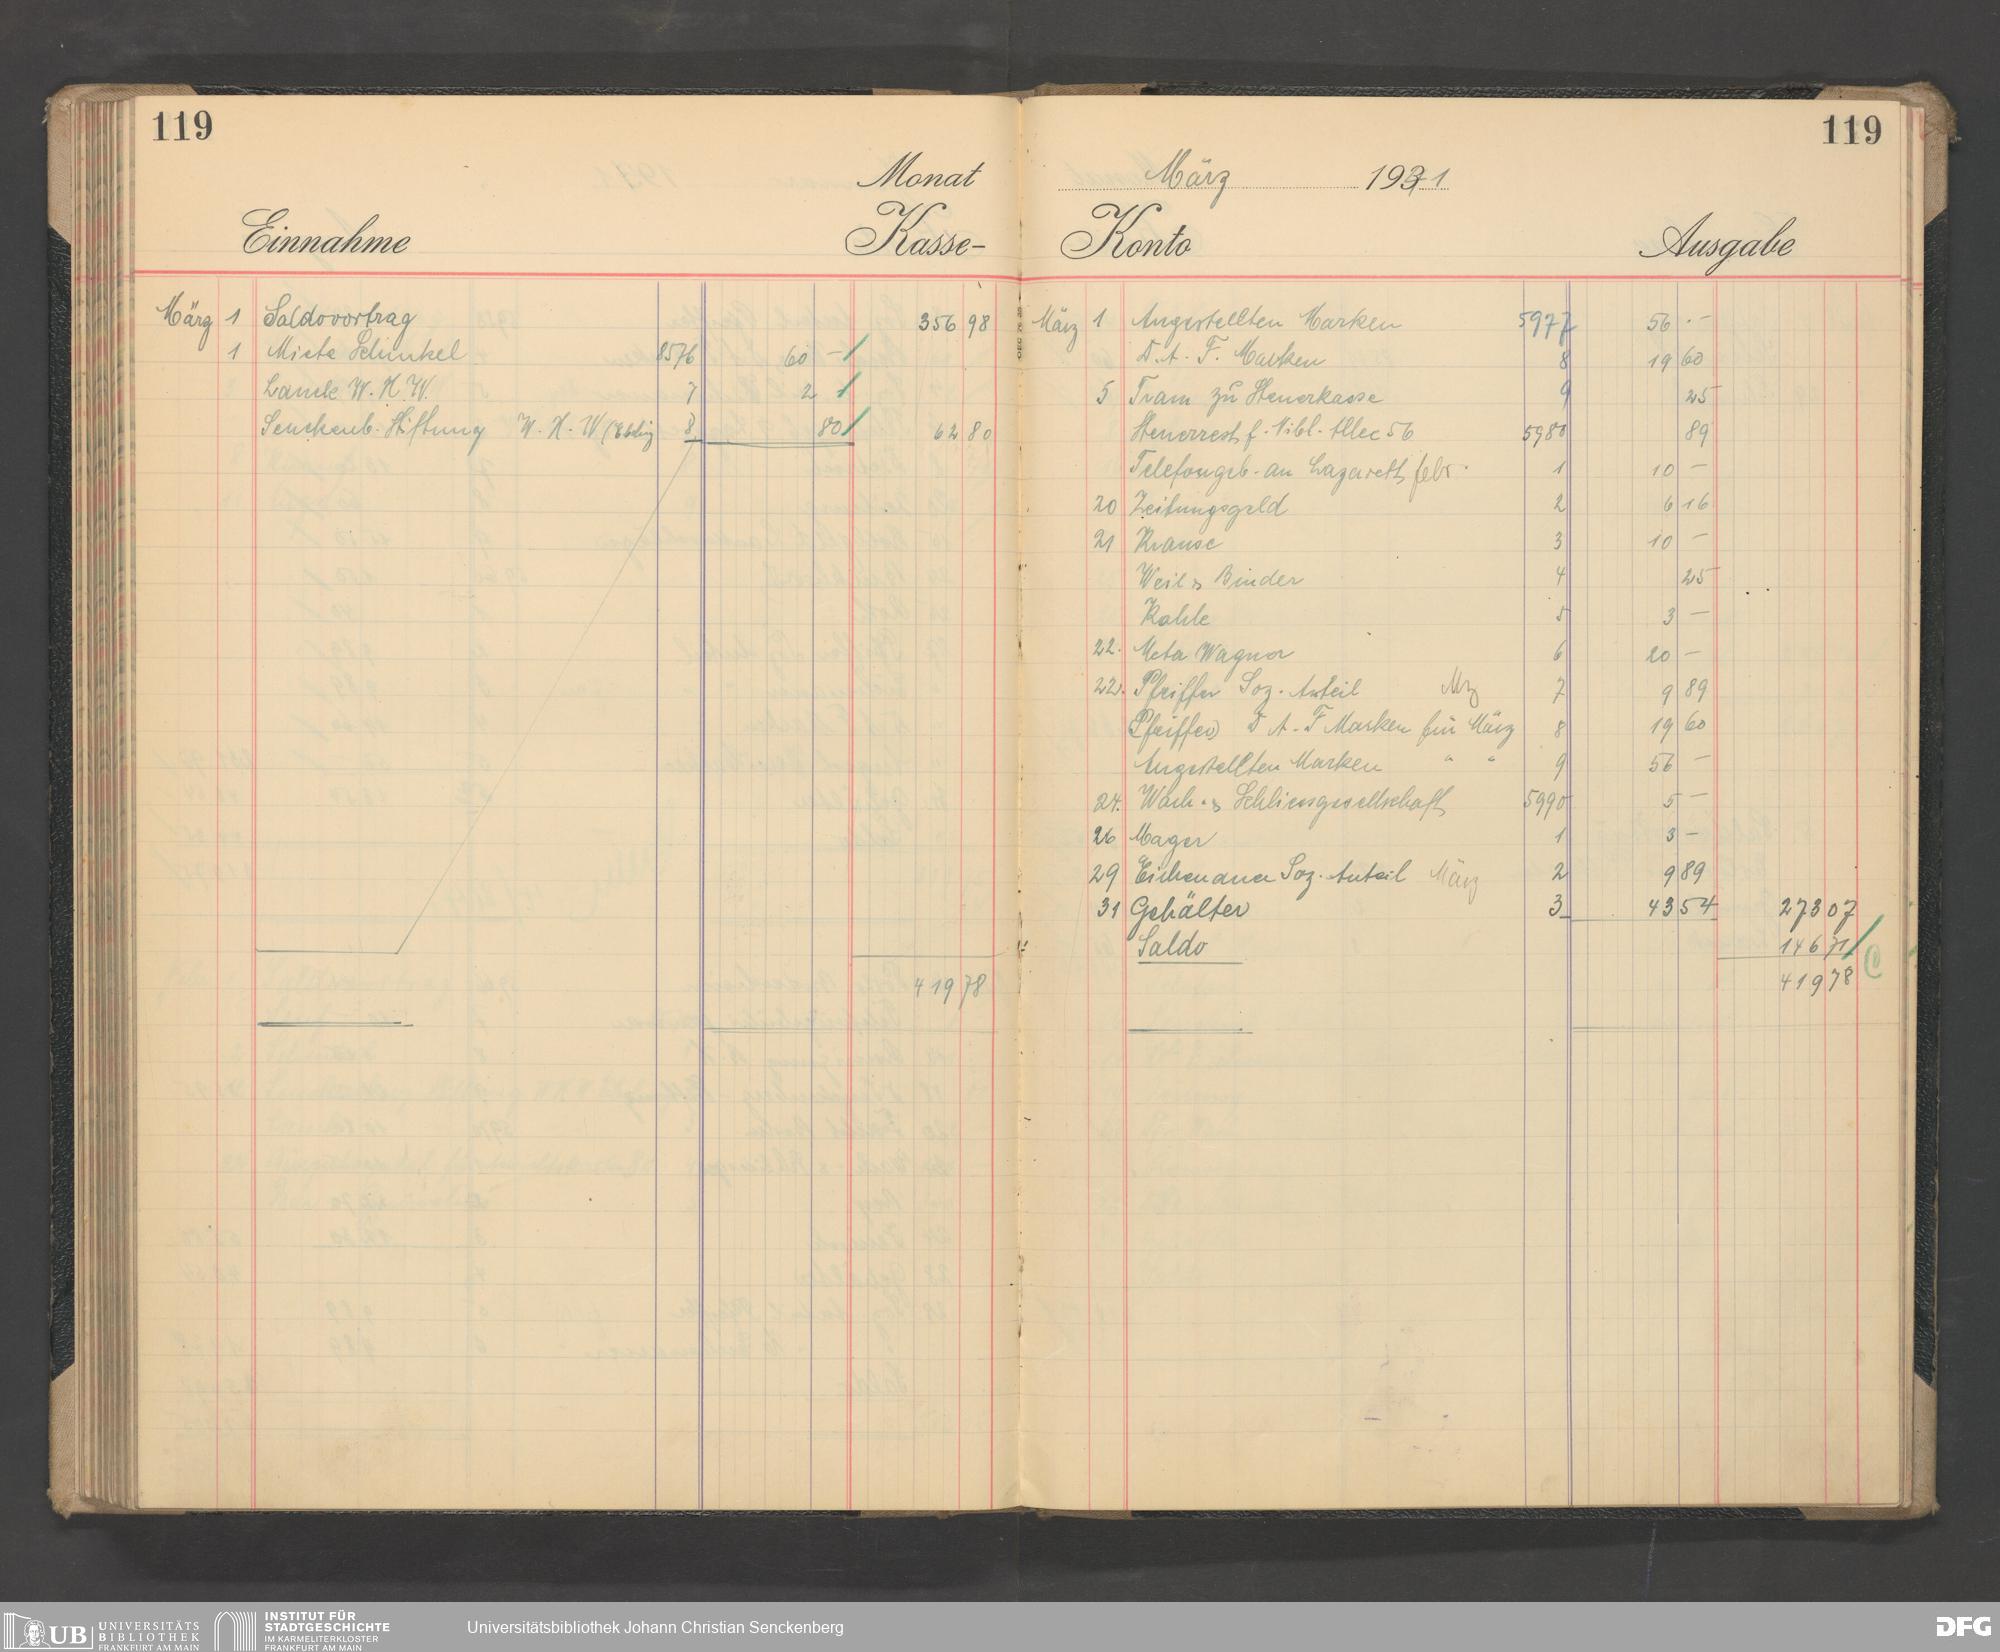 119
Monat
Einnahme Kasse-
März 1 Saldovortrag 356 98
1 Miete Schinkel 8576 60 -
W. H. W. 7 2
Senckenb. Stiftung W. H. W 8 80 62 80
419 78
119
März 1931
Konto Ausgabe
März 1 Angestellten Marken 5977 56 . -
D. A. F. Marken 8 19 60
5 Tram zu Steuerkasse 9 25
Steuerrest f. Allee 56 5980 89
Telefongeb. an Lazarett febr. 1 10 -
20 Zeitungsgeld 2 6 16
21 Krause 3 10 -
Weil & Binder 4 25
Kahle 5 3 -
22. Meta Wagner 6 20 -
22. Pfeiffer Soz. Anteil Mz 7 9 89
(Pfeiffer) D A. F Marken für März 8 19 60
Angestellten Marken " " 9 56 -
24. Wach- & Schliessgesellschaft 5990 5 -
26 Mager 1 3 -
29 Soz. Anteil März 2 9 89
31 Gehälter 3 43 54 273 07
Saldo 146 71
419 78
UB UNIVERSITÄTS
BIBLIOTHEK
FRANKFURT AM MAIN
INSTITUT FÜR
STADTGESCHICHTE
IM KARMELITERKLOSTER
FRANKFURT AM MAIN
Universitätsbibliothek Johann Christian Senckenberg
DFG